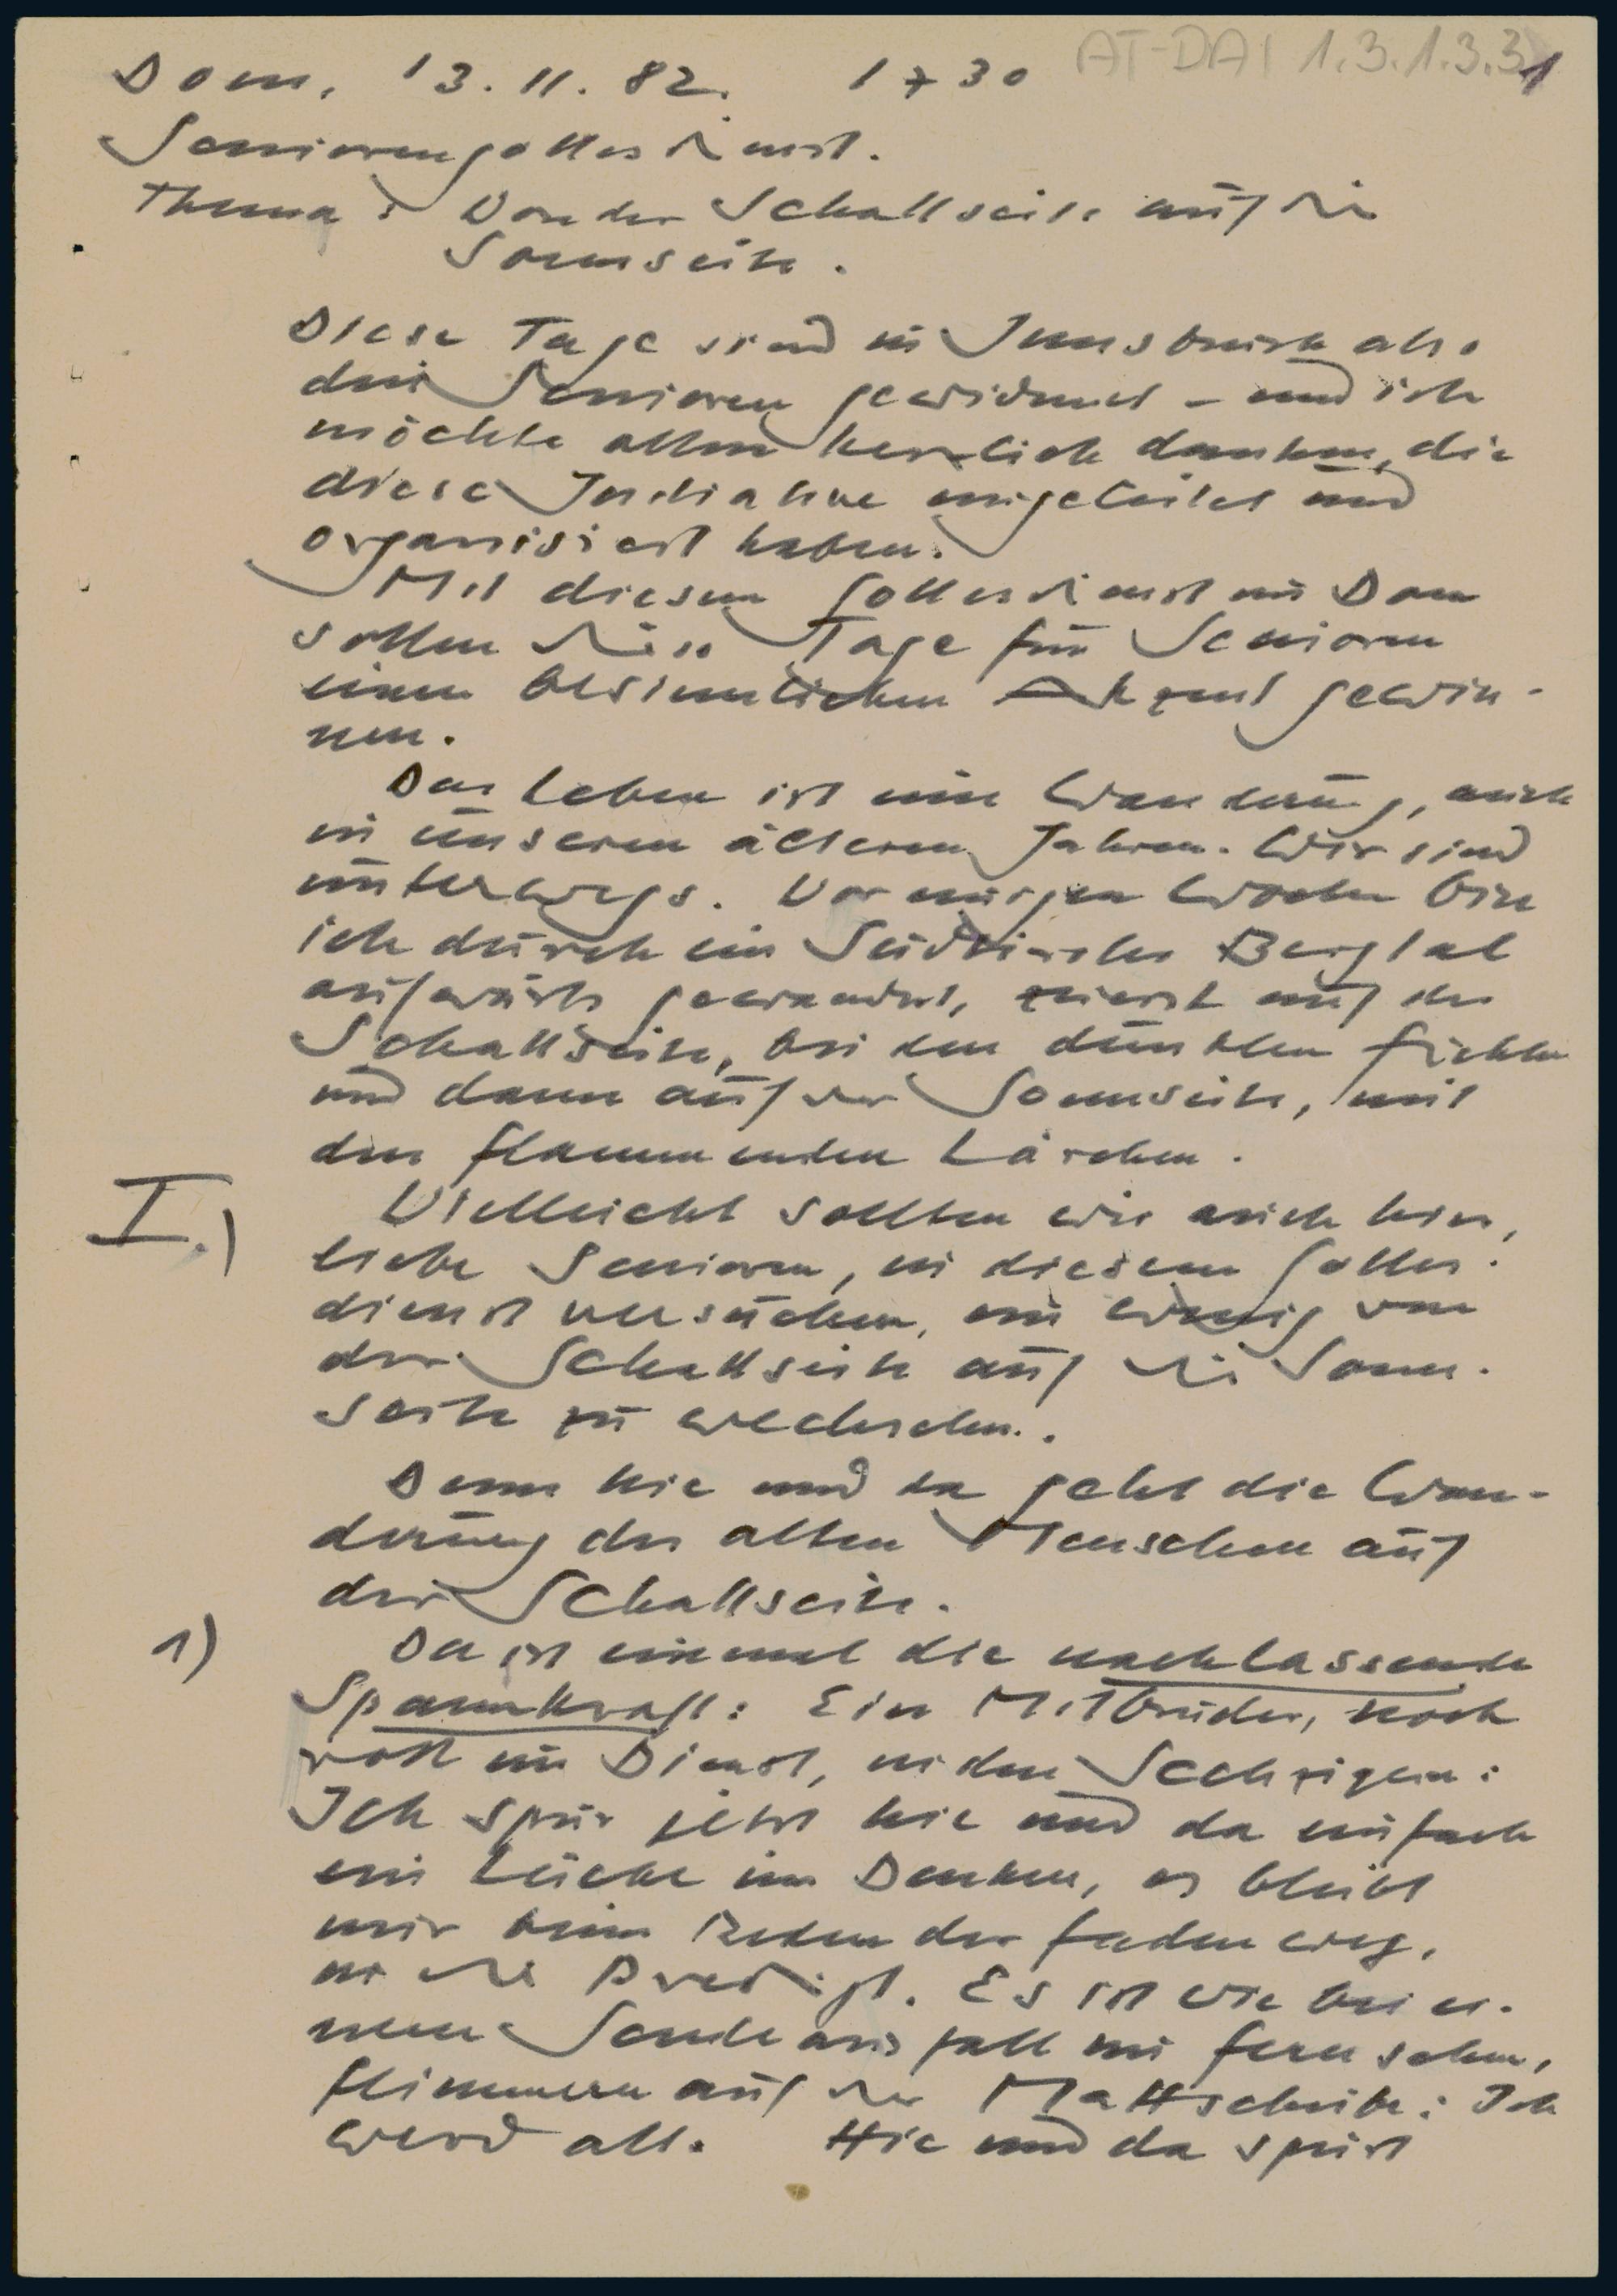 Dom, 13. 11. 82. 17 30 AT-DAI 1.3.1.3.31
Seniorengottesdienst.
Thema: Von der Schattseite auf die
Sonnseite.
Diese Tage sind in Innsbruck also
den Senioren gewidmet - und ich
möchte allen herzlich danken, die
diese Initiative eingeleitet und
organisiert haben.
Mit diesem Gottesdienst im Dom
sollen diese Tage für Senioren
einen besinnlichen Akzent gewin-
nen.
Das Leben ist eine Wanderung, auch
in unseren älteren Jahren. Wir sind
unterwegs. Vor einigen Wochen bin
ich durch ein Südtiroler Bergtal
aufwärts gewandert, zuerst auf der
Schattseite, bei den dunklen Fichten
und dann auf der Sonnseite, mit
den flammenden Lärchen.
I.) Vielleicht sollten wir auch hier,
liebe Senioren, in diesem Gottes-
dienst versuchen, ein wenig von
der Schattseite auf die Sonn-
seite zu wechseln.
Denn hie und da geht die Wan-
derung des alten Menschen auf
der Schattseite.
1) Da ist einmal die nachlassende
Spannkraft: Ein Mitbruder, noch
voll im Dienst, in den Sechzigern:
Ich spür jetzt hie und da einfach
ein Lücke im Denken, es bleibt
mir beim Reden der Faden weg,
in der Predigt. Es ist wie bei ei-
nem Sendeausfall im Fernsehen,
flimmern auf der Mattscheibe: Ich
werd alt. Hie und da spürt